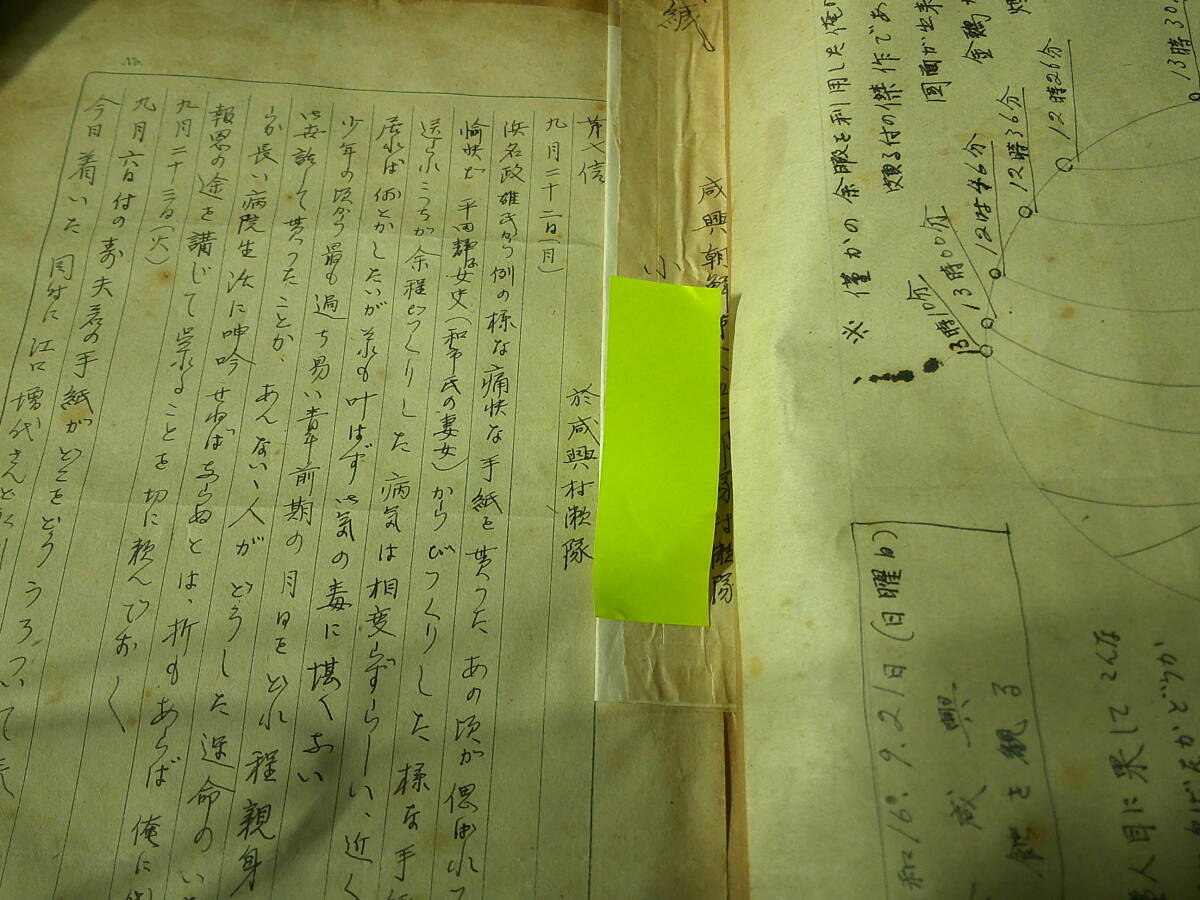 ※ 僅かの余暇を利用した俺
頗る付の傑作であ
図面が出来
金鵄
13時30
12時26分
12時36分
12時46分
13時00分
13時10分
和16.9.21日(日曜日)
咸興
蝕を観る
人目に果してこんな
どうか
緘
咸興朝鮮
隊
小
第七信
於咸興村瀬隊
九月二十二日(月)
浜名政雄氏から例の様な痛快な手紙を貰った あの頃が偲ばれて
愉快だ 平田静女史(和市氏の妻女)からびっくりした様な手
送られこちが余程びっくりした 病気は相変らずらしい、近く
居れば何とかしたいが其れも叶はず 気の毒に堪へない
少年の頃から最も過ち易い青年前期の月日をどれ程親身
御世話して貰ったことか、あんないゝ人がどうした運命のい
か長い病院生活に呻吟せねばならぬとは、折もあらば俺に
報恩の途を講じて呉れることを切に頼んでおく
九月二十三日(火)
九月六日付の寿夫君の手紙がどこをどううろついて
今日着いた 同封に江口増代さん